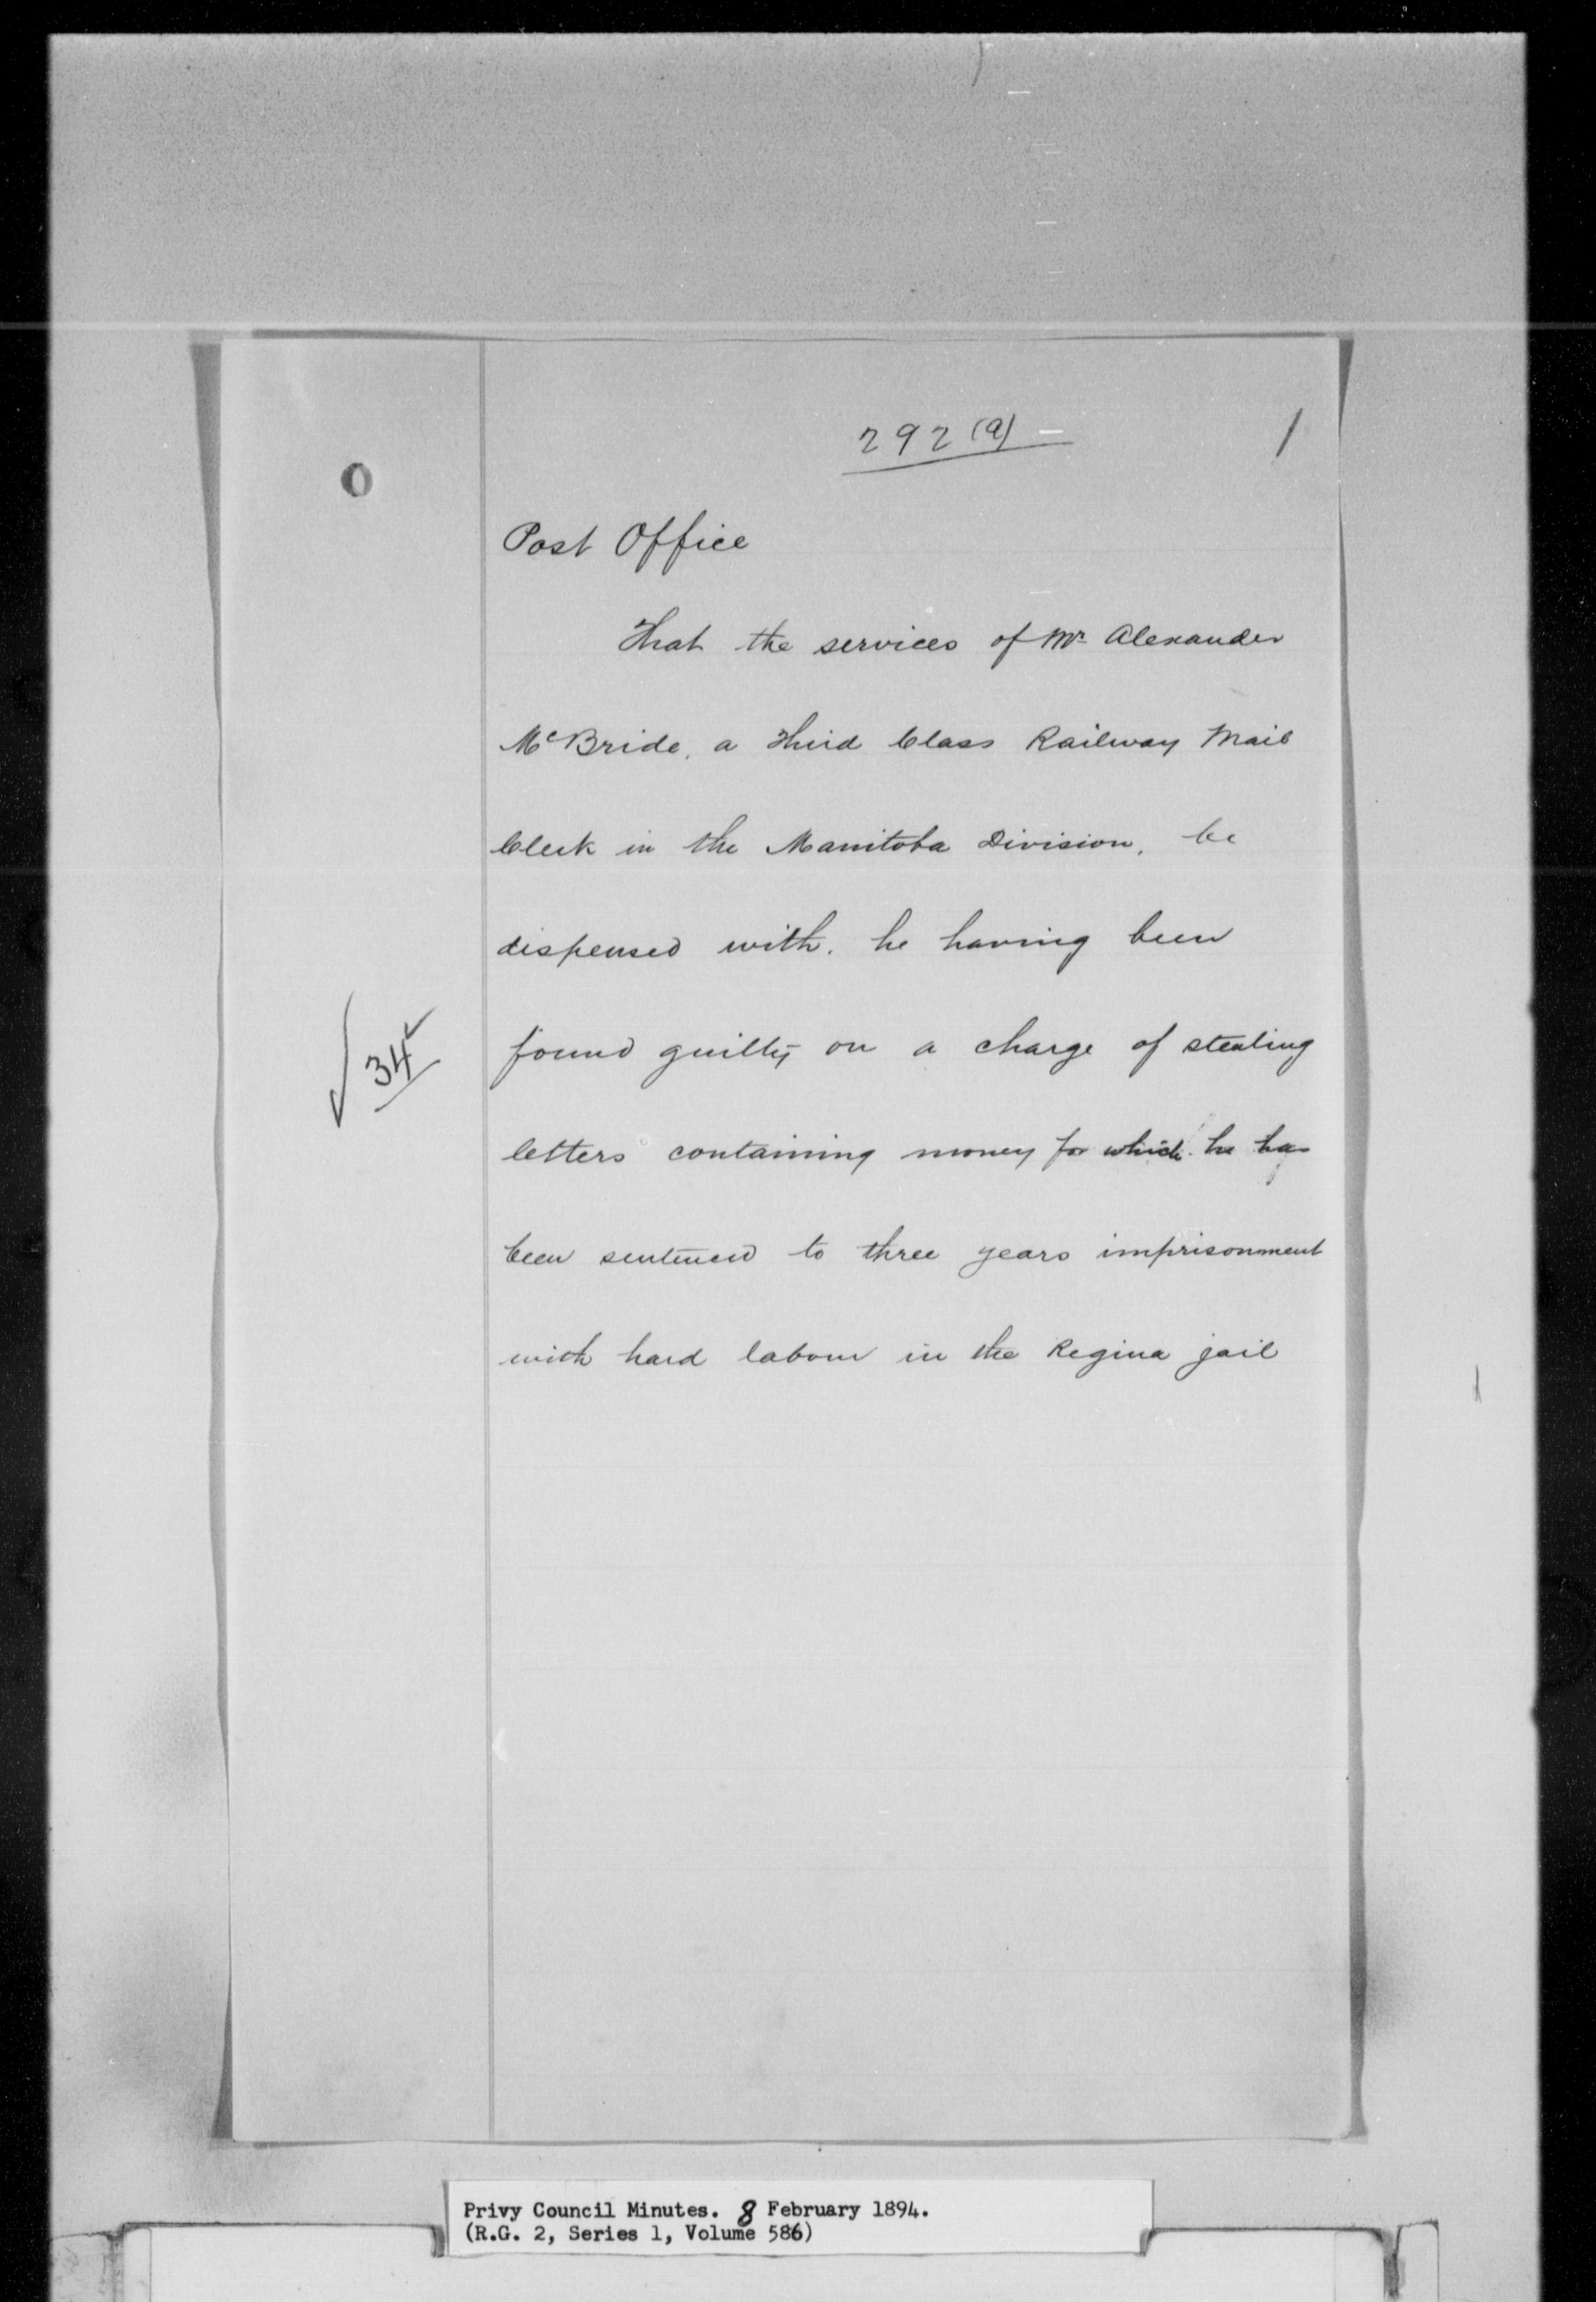 292 (a) —
1
0
Post Office
That the services of Mr Alexander
McBride, a Third Class Railway Mail
Clerk in the Manitoba Division, be
dispensed with, he having been
found guilty on a charge of stealing
34
letters containing money for which he has
been sentenced to three years imprisonment
with hard labour in the Regina jail
Privy Council Minutes. 8 February 1894.
(R.G. 2, Series 1, Volume 586)